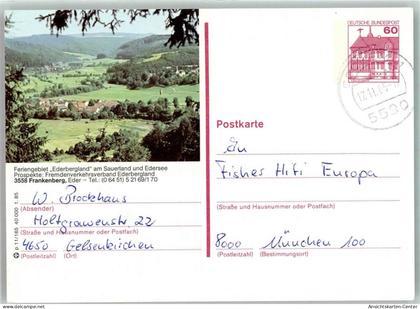 DEUTSCHE BUNDESPOST
60
17.11.
5590
Feriengebiet „Ederbergland" am Sauerland und Edersee
Prospekte: Fremdenverkehrsverband Ederbergland
3558 Frankenberg, Eder – Tel.: (0 64 51) 5 21 69/1 70
Postkarte
An
Fishes Hifi Europa
(Straße und Hausnummer oder Postfach)
8000 München 100
(Postleitzahl) (Bestimmungsort)
W. Brockhaus
(Absender)
Holtgrawenstr 22
(Straße und Hausnummer oder Postfach)
4650 Gelsenkirchen
(Postleitzahl) (Ort)
Ansichtskarten-Center